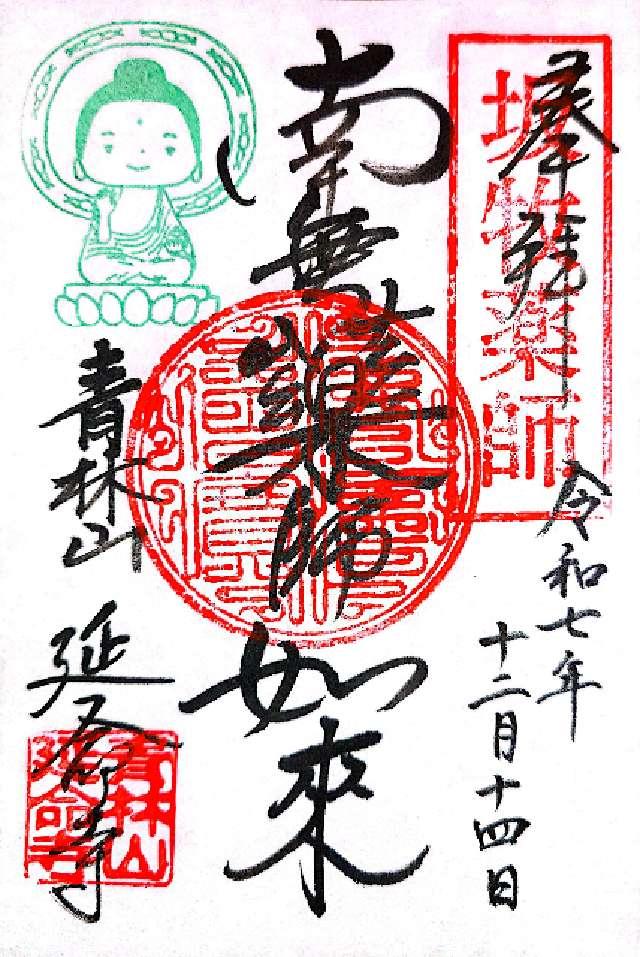 奉拝
堀牧薬師
令和七年
十二月十四日
南無薬師如來
青林山
延命寺
青林山
延命寺